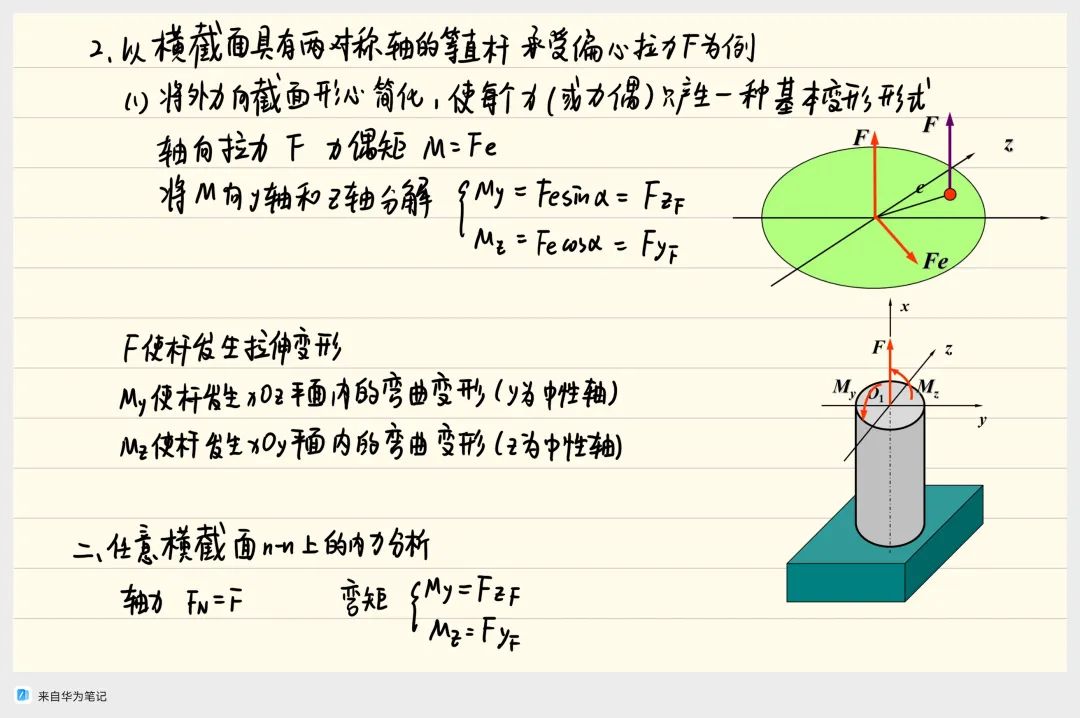 2、以横截面具有两对称轴的等直杆 承受偏心拉力F为例
(1) 将外力向截面形心简化，使每个力(或力偶)只产生一种基本变形形式
轴向拉力 F 力偶矩 M=Fe
将M向y轴和z轴分解 { My = Fesinα = FzF
Mz = Fecosα = FyF
F
F
z
e
Fe
F使杆发生拉伸变形
My使杆发生xOz平面内的弯曲变形(y为中性轴)
Mz使杆发生xOy平面内的弯曲变形(z为中性轴)
x
F
z
My
O1
Mz
y
二、任意横截面n-n上的内力分析
轴力 FN=F 弯矩 { My=FzF
Mz=FyF
来自华为笔记